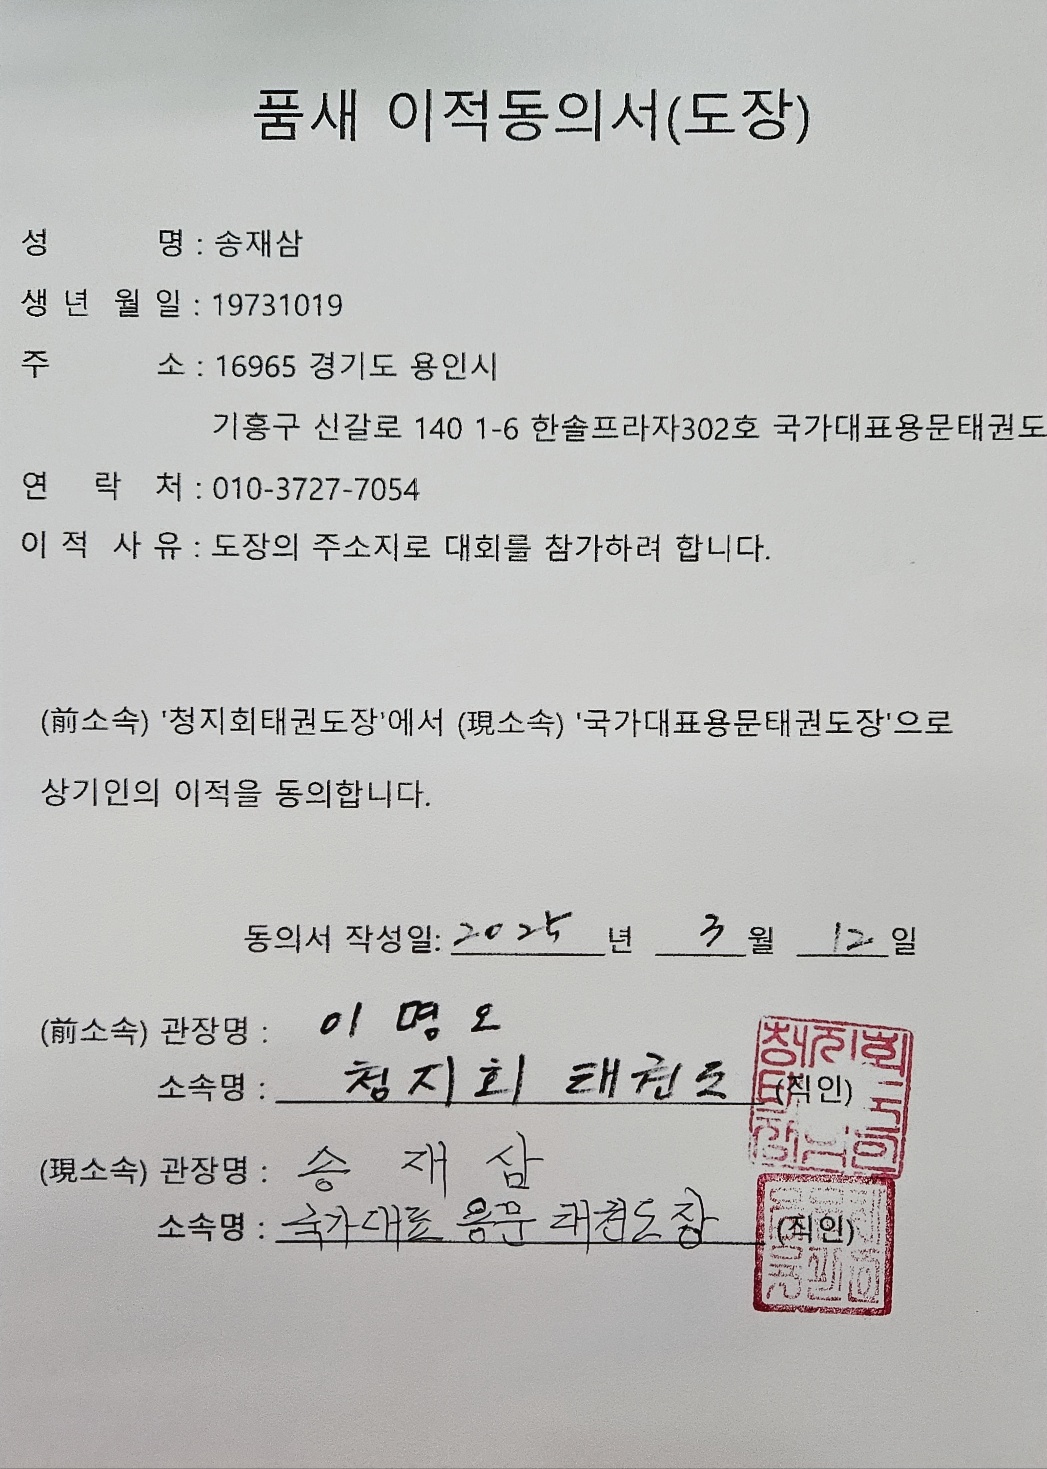 품새 이적동의서(도장)
성 명 : 송재삼
생 년 월 일 : 19731019
주 소 : 16965 경기도 용인시
기흥구 신갈로 140 1-6 한솔프라자302호 국가대표용문태권도
연 락 처 : 010-3727-7054
이 적 사 유 : 도장의 주소지로 대회를 참가하려 합니다.
(前소속) '청지회태권도장'에서 (現소속) '국가대표용문태권도장'으로
상기인의 이적을 동의합니다.
동의서 작성일: 2025 년 3 월 12 일
(前소속) 관장명 : 이 명 오
소속명 : 청지회 태권도 (직인)
(現소속) 관장명 : 송 재 삼
소속명 : 국가대표 용문 태권도장 (직인)